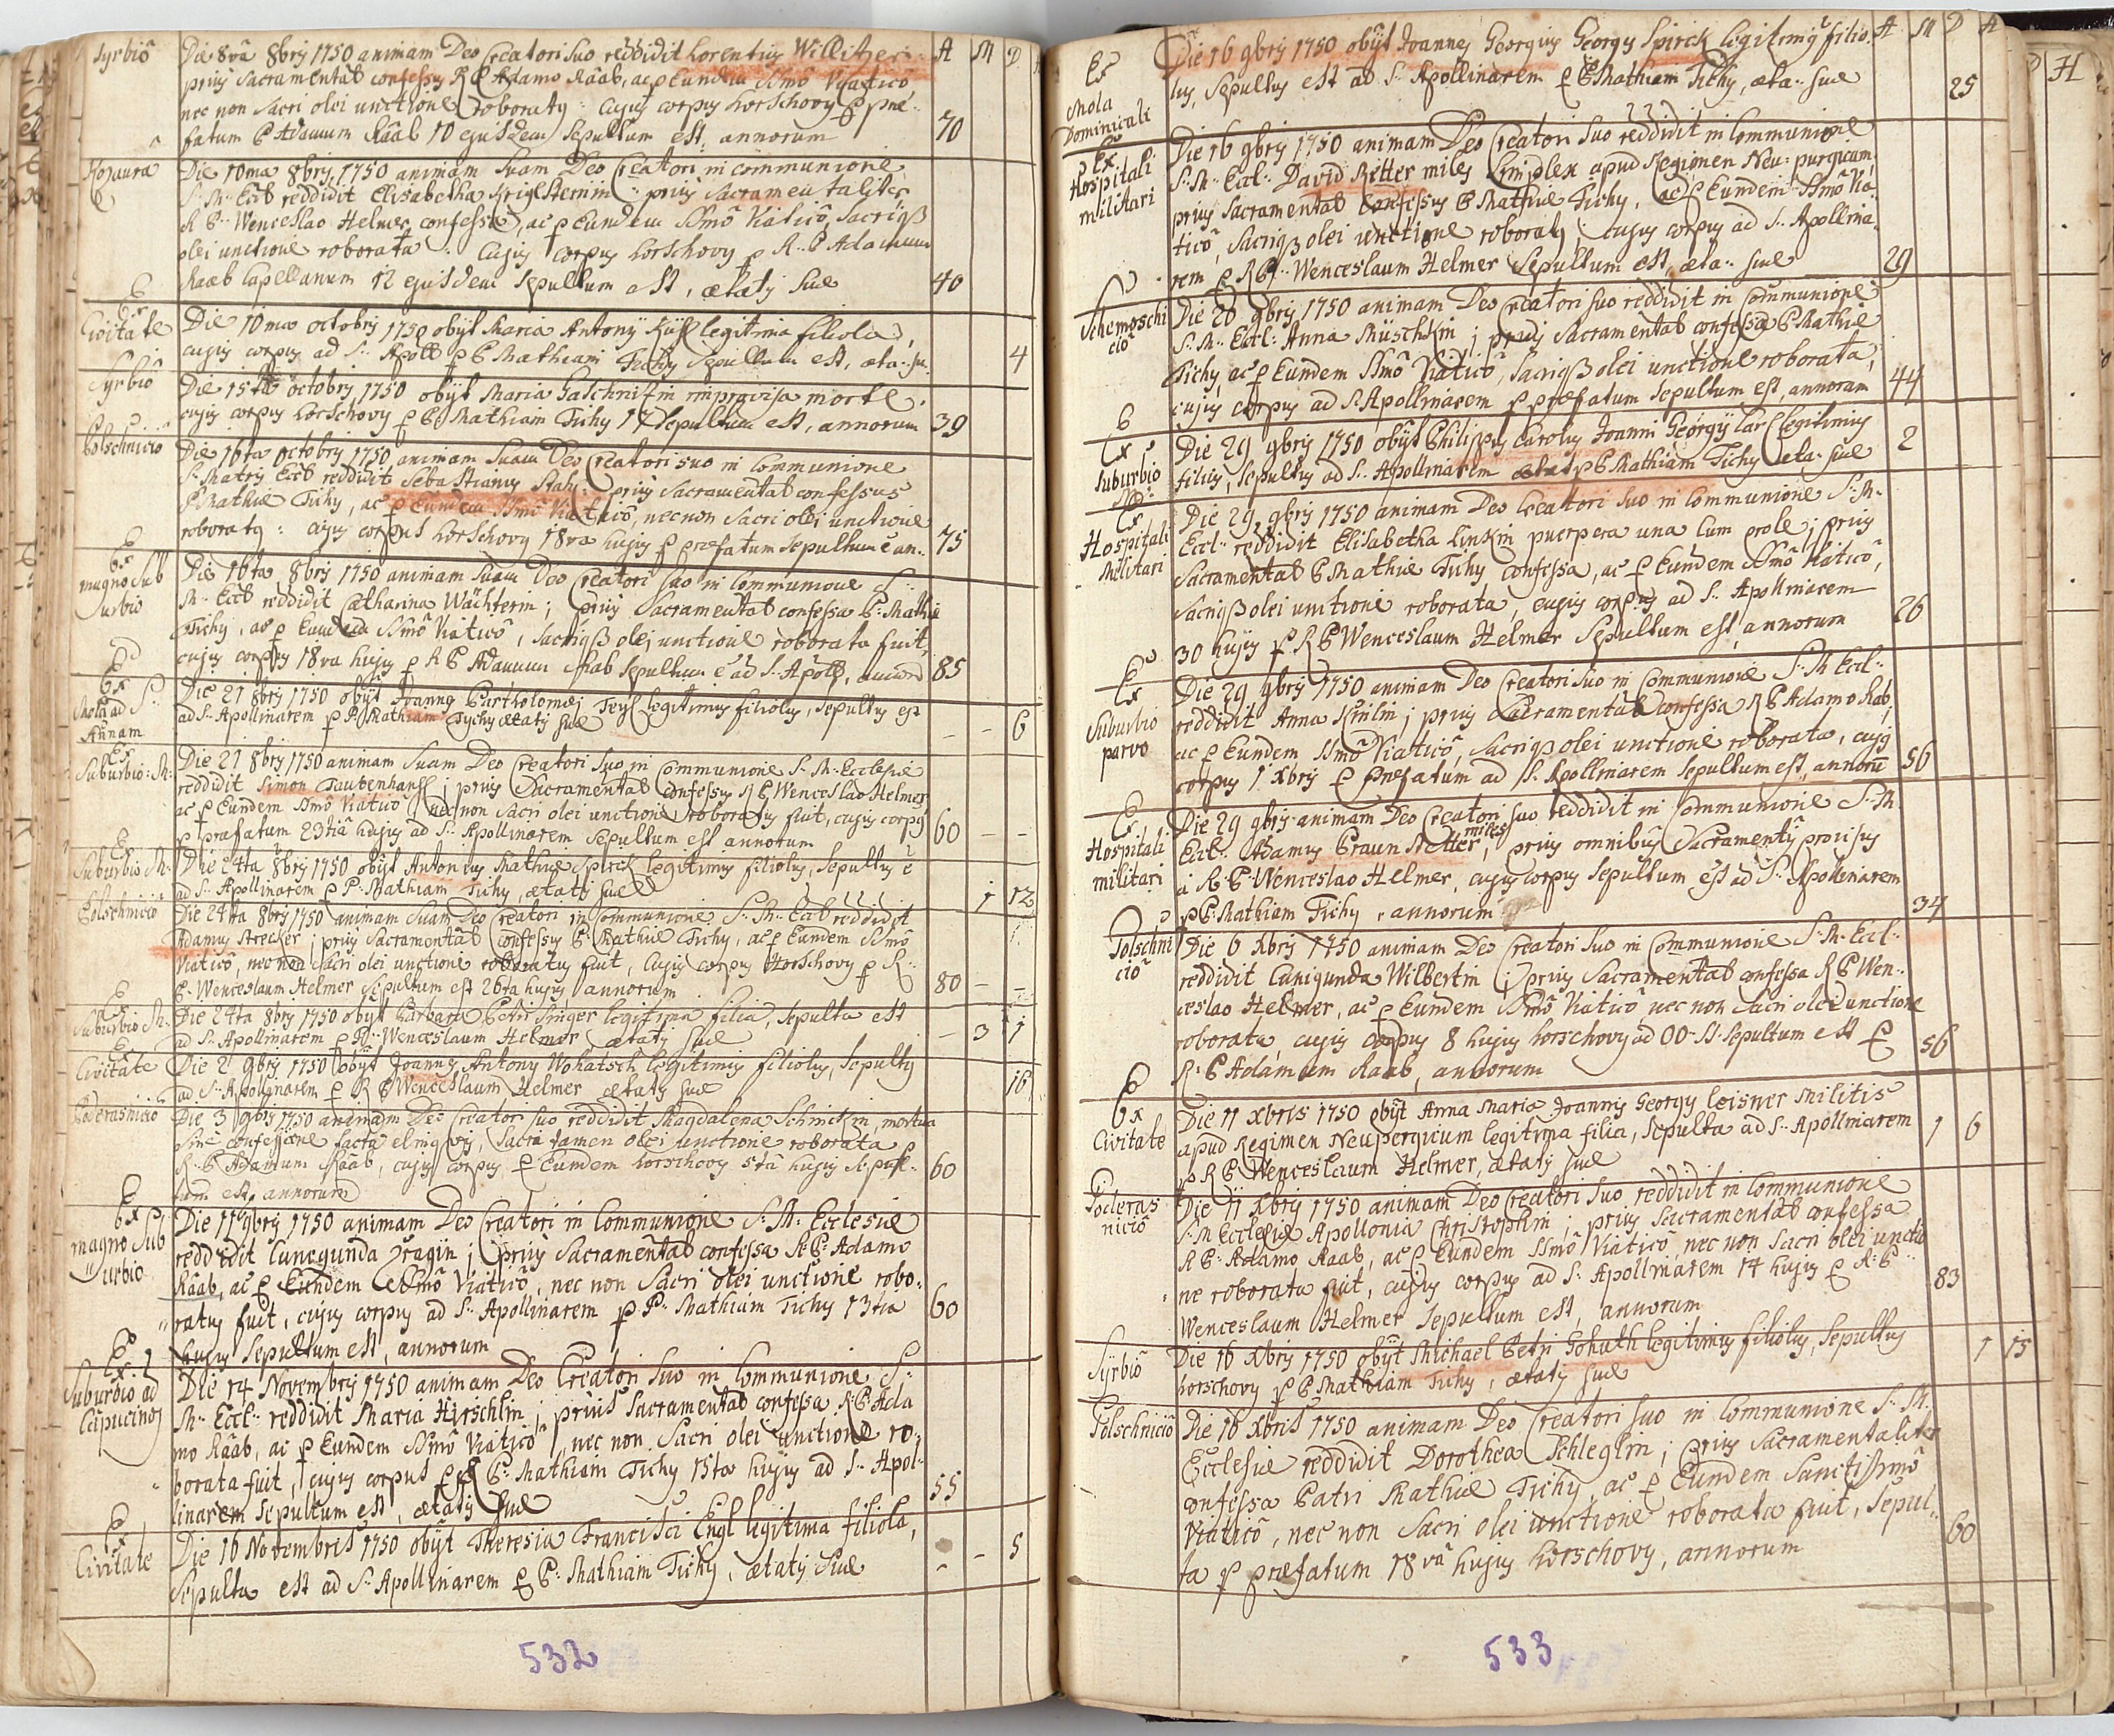 Syrbiõ
Die 8vâ 8bry 1750 animam Deo Creatori Suo reddidit Lorentius Willitzer
A M D
prius Sacramentab confessy R P Adamo Raab, ac p Eundem SSmô Viaticô
nec non Sacri olei unctione roboraty: cujus corpus horschovy p præ-
fatum P Adamum Raab 10 ejusdem Sepultum est, annorum
70
Die 10ma 8bry 1750 animam Suam Deo Creatori in communione
S: M: Eccl reddidit Elisabetha prius Sacramentaliter
R P: Wenceslao Helmer confessa, ac p Eundem SSmô Viaticô, Sacriqß
olei unctione roborata: Cujus corpus horschovy p R: P Adamum
Raab Capellanum 12 ejusdem Sepultum est, ætaty Suæ
40
Ex
Civitate
Die 10ma octobry 1750 obÿt Maria Antonÿ legitima filiola,
cujus corpus ad S: Apoll p P Mathiam Tichy Sepultum est, æta: su:
4
Syrbiô
Die 15ta octobry 1750 obÿt Maria Gaschnitzin improvisa morte,
cujus corpus horschovy p P Mathiam Tichy 17 Sepultum est, annorum
39
Polschniciô
Die 16ta octobry 1750 animam Suam Deo Creatori suo in Communione
S: Matris Eccl reddidit Sebastianus prius Sacramentab confessus
P Mathiæ Tichy, ac p Eundem SSmô Viaticô, nec non Sacri olei unctione
roboraty: cujus corpus horschovy 18va hujus p præfatum Sepultum ê an:
75
Ex
magno Sub
urbio
Die 16ta 8bry 1750 animam Suam Deo Creatori suo in Communione S:
M: Eccl reddidit Catharina Wächterin; prius Sacramentab confessa P: Mathiæ
Tichy, ac p Eundem SSmô Viaticô, Sacriqß olei unctione roborata fuit,
cujus corpus 18va hujus p R P Adamum Raab Sepultum ê ad S: Apoll,
85
Ex
Mola ad S:
Annam
Die 21 8bry 1750 obÿt Joannes Bartholomæj legitimus filiolus, sepultus est
ad S: Apollinarem p P: Mathiam Tychy ætatis suæ
- - 6
Ex
Suburbio: M:
Die 21 8bry 1750 animam Suam Deo Creatori Suo in Communione S: M: Ecclesiæ
reddidit Simon Tautenhansl; prius Sacramentab Confessus R P Wenceslao Helmer
ac p Eundem SSmô Viaticô, nec non Sacri olei unctione roboratus fuit, cujus corpus
p præfatum 23tiâ hujus ad S: Apollinarem Sepultum est annorum
60 - -
Ex
Suburbio M:
Die 24ta 8bry 1750 obÿt Antonius Mathiæ Spirck legitimus filiolus, Sepultus ê
ad S: Apollinarem p P: Mathiam Tichy, ætaty suæ
1 12
Polschniciô
Die 24ta 8bry 1750 animam Suam Deo Creatori in Communione S: M: Eccl reddidit
Adamus Strecker; prius Sacramentab Confessy P Mathiæ Tichy, ac p Eundem SSmô
Viaticô, nec non Sacri olei unctione roboratus fuit, Cujus corpus Horschovy p R:
P: Wenceslaum Helmer Sepultum est 26ta hujus annorum
80 - -
Ex
Suburbio M:
Die 24ta 8bry 1750 obÿt Barbara Petri Singer legitima filia, sepulta est
ad S: Apollinarem p R: Wenceslaum Helmer ætaty suæ
- 3 1
Ex
Civitate
Die 2 9bry 1750 obÿt Joannes Antony Wokatsch legitimus filiolus, Sepultus
ad S: Apollinarem p R P Wenceslaum Helmer ætaty suæ
16
Poderasniciô
Die 3 9bry 1750 animam Deo Creatori suo reddidit Magdalena mortua
sine confessione facta elinguis, Sacra tamen olei unctione roborata p
R: P Adamum Raab, cujus corpus p Eundem horschovy 5tâ hujus Sepul-
tum est, annorum
60
Ex
magno Sub
urbio
Die 11 9bry 1750 animam Deo Creatori in Communione S: M: Ecclesiæ
reddidit Cunegunda prius Sacramentab confessa R: P: Adamo
Raab, ac p Eundem SSmô Viaticô, nec non Sacri olei unctione robo-
ratus fuit, cujus corpus ad S: Apollinarem p P: Mathiam Tichy 13tia
hujus Sepultum est, annorum
60
Ex
Suburbio ad
Capucinos
Die 14 Novembry 1750 animam Deo Creatori Suo in Communione S:
M: Eccl: reddidit Maria Hirschlin; prius Sacramentab confessa R: P Ada
mo Raab, ac p Eundem SSmô Viaticô, nec non Sacri olei unctione ro-
borata fuit, cujus corpus p P: Mathiam Tichy 15ta hujus ad S: Apol-
linarem Sepultum est, ætatis suæ
55
Ex
Civitate
Die 16 Novembris 1750 obÿt Theresia Francisci Engl legitima filiola,
Sepulta est ad S: Apollinarem p P: Mathiam Tichy, ætaty Suæ
- - 5
532
Ex
Mola
Dominicali
Die 16 9bry 1750 obÿt Joannes Georgius Georgy Spirck legitimus filio-
A M D
lus, Sepultus est ad S: Apollinarem p P Mathiam Tichy, æta: suæ
25
Ex
Hospitali
militari
Die 16 9bry 1750 animam Deo Creatori suo reddidit in Communione
S: M: Eccl: David Ritter miles Simplex apud Regimen Neu: purgicum,
prius Sacramentab Confessus P Mathiæ Tichy, ac p Eundem SSmô Via-
ticô, Sacriqß olei unctione roboraty; cujus corpus ad S: Apollina-
rem p R P: Wenceslaum Helmer Sepultum est, æta: suæ
29
Schemoschi
ciô
Die 20 9bry 1750 animam Deo Creatori suo reddidit in Communione
S: M: Eccl: Anna Müschkin; prius Sacramentab confessa P Mathiæ
Tichy, ac p Eundem SSmô Viaticô, Sacriqß olei unctione roborata,
cujus corpus ad S: Apollinarem p præfatum Sepultum est, annorum
44
Ex
Suburbio
Die 29 9bry 1750 obÿt Philippus Carolus Joanni Georgÿ legitimus
filius, Sepultus ad S: Apollinarem p P Mathiam Tichy æta: suæ
2
Ex
Hospitali
Militari
Die 29 9bry 1750 animam Deo Creatori suo in Communione S: M:
Eccl: reddidit Elisabetha Linkin puerpera una cum prole; prius
Sacramentab P Mathiæ Tichy confessa, ac p Eundem SSmô Viaticô,
Sacriqß olei unctione roborata, cujus corpus ad S: Apollinarem
30 hujus p R P Wenceslaum Helmer Sepultum est annorum
26
Ex
Suburbio
parvo
Die 29 9bry 1750 animam Deo Creatori suo in Communione S: M Eccl:
reddidit Anna prius Sacramentab confessa R P Adamo Rab,
ac p Eundem SSmô Viaticô, Sacriqß olei unctione roborata, cujus
corpus 1 Xbry p præfatum ad S: Apollinarem sepultum est, annorũ
56
Ex
Hospitali
militari
Die 29 9bry animam Deo Creatori suo reddidit in Communione S: M
Eccl: Adamus Braun miles, prius omnibus Sacramentis provisus
a R: P: Wenceslao Helmer, cujus corpus sepultum est ad S: Apollinarem
p P: Mathiam Tichy, annorum
34
Polschni
ciô
Die 6 Xbry 1750 animam Deo Creatori suo in Communione S: M: Eccl:
reddidit Cunigunda Wilbertin; prius Sacramentab confessa R P Wen-
ceslao Helmer, ac p Eundem SSmô Viaticô nec non Sacri olei unctione
roborata, cujus corpus 8 hujus horschovy ad OO: SS: sepultum est p
R: P Adamum Raab, annorum
56
Ex
Civitate
Die 11 Xbris 1750 obÿt Anna Maria Joannis Georgy Leisner Militis
apud Regimen Neupergicum legitima filia, Sepulta ad S: Apollinarem
p R P Wenceslaum Helmer, ætaty suæ
1 6
Poderas
niciô
Die 11 Xbry 1750 animam Deo Creatori suo reddidit in Communione
S: M Ecclesiæ Apollonia Christophlin; prius Sacramentab confessa
R P: Adamo Raab, ac p Eundem SSmô Viaticô nec non Sacri olei unctio
ne roborata fuit, cujus corpus ad S: Apollinarem 14 hujus p R: P
Wenceslaum Helmer Sepultum est, annorum
83
Syrbiô
Die 16 Xbry 1750 obÿt Michael Petri Gohuth legitimus filiolus, Sepultus
horschovy p P Mathiam Tichy, ætaty suæ
1 15
Polschniciô
Die 16 Xbris 1750 animam Deo Creatori suo in Communione S: M:
Ecclesiæ reddidit Dorothea Schleglin; prius Sacramentaliter
confessa Patri Mathiæ Tichy, ac p Eundem Sanctissimô
Viaticô, nec non Sacri olei unctione roborata fuit, Sepul-
ta p præfatum 18vâ hujus horschovy, annorum
60
533